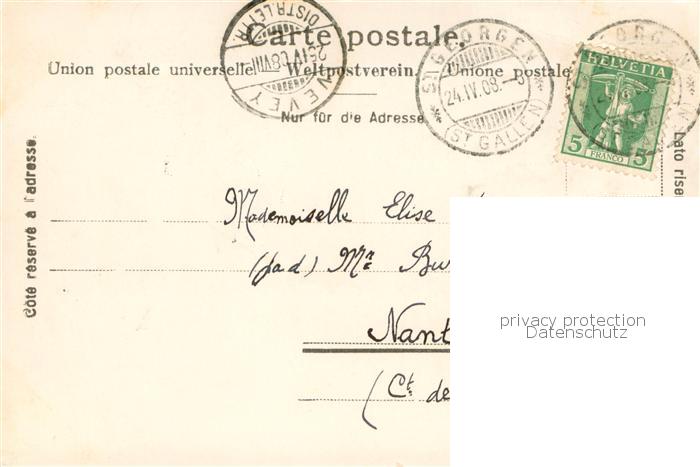 Carte postale.
Union postale universelle. Weltpostverein. Unione postale
Nur für die Adresse
Côté réservé à l'adresse.
Lato rise
VEVEY
25.IV.08.VIII
DISTR.LETTR.
ST. GEORGEN
24.IV.08.
(ST GALLEN)
HELVETIA
5 5
FRANCO
Mademoiselle Elise
Mr
Nant
(Ct de
privacy protection
Datenschutz